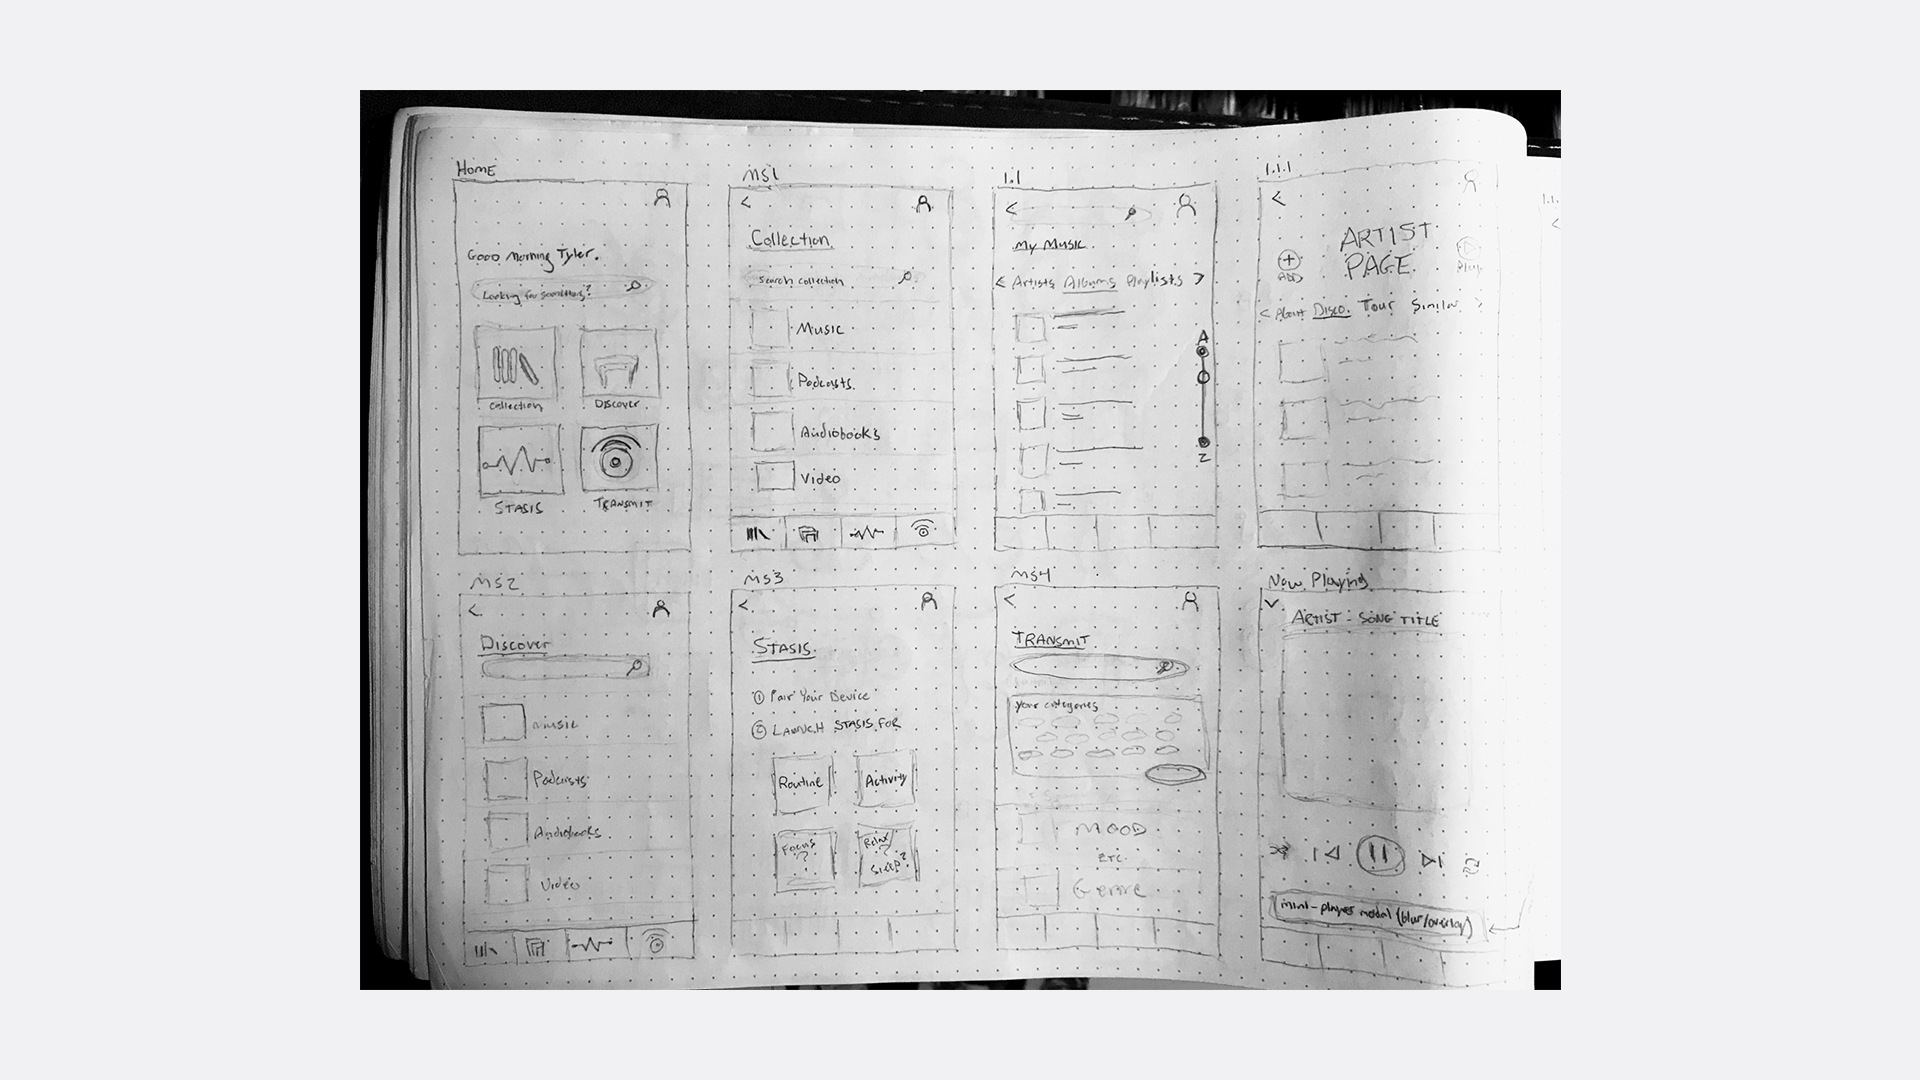 Home
Good Morning Tyler.
Looking for something?
Collection
Discover
STASIS
TRANSMIT
MS1
Collection
Search collection
Music
Podcasts
Audiobooks
Video
1.1
My Music
< Artists Albums Playlists >
A
Z
1.1.1
ARTIST
PAGE
ADD
Play
< About Disco. Tour Similar >
1.1.
MS2
Discover
music
Podcasts
Audiobooks
Video
MS3
STASIS
① Pair Your Device
② LAUNCH STASIS FOR
Routine
Activity
Focus
?
Relax
?
Sleep?
MS4
TRANSMIT
your categories
MOOD
ETC.
Genre
Now Playing
ARTIST - SONG TITLE
mini-player modal (blur/overlay)